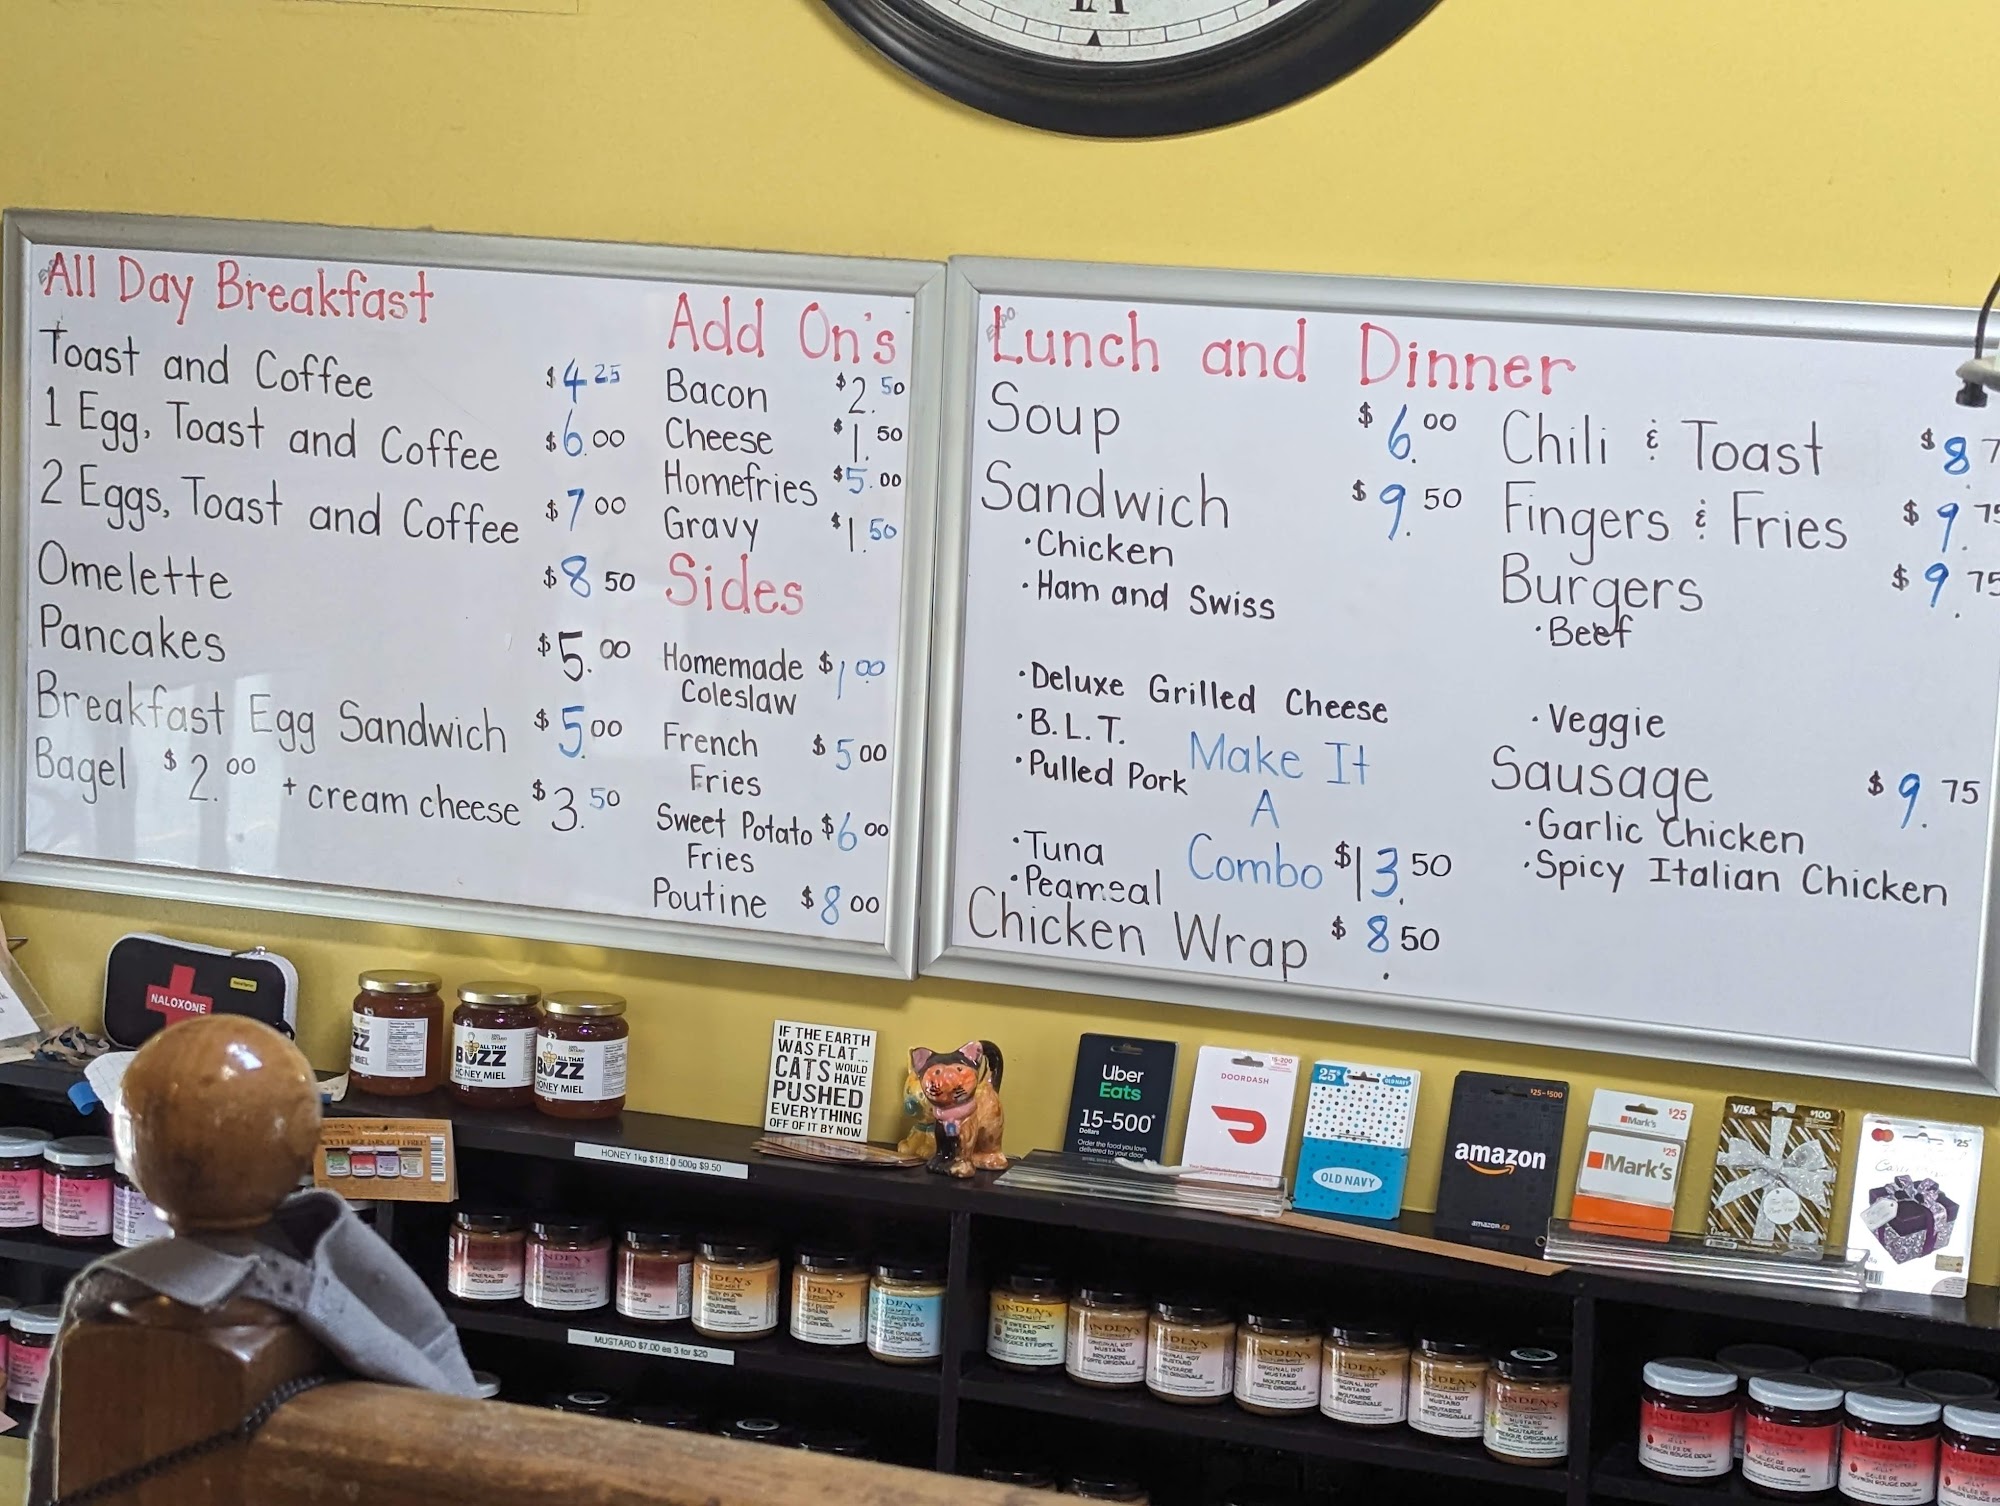 All Day Breakfast
Toast and Coffee $4.25
1 Egg, Toast and Coffee $6.00
2 Eggs, Toast and Coffee $7.00
Omelette $8.50
Pancakes $5.00
Breakfast Egg Sandwich $5.00
Bagel $2.00 + cream cheese $3.50
Add On's
Bacon $2.50
Cheese $1.50
Homefries $5.00
Gravy $1.50
Sides
Homemade $1.00
Coleslaw
French $5.00
Fries
Sweet Potato $6.00
Fries
Poutine $8.00
EXPO
Lunch and Dinner
Soup $6.00
Sandwich $9.50
·Chicken
·Ham and Swiss
·Deluxe Grilled Cheese
·B.L.T.
·Pulled Pork
·Tuna
·Peameal
Make It
A
Combo $13.50
Chicken Wrap $8.50
Chili & Toast $8.7
Fingers & Fries $9.75
Burgers $9.75
·Beef
·Veggie
Sausage $9.75
·Garlic Chicken
·Spicy Italian Chicken
NALOXONE
ALL THAT
BUZZ
HONEY MIEL
ALL THAT
BUZZ
HONEY MIEL
IF THE EARTH
WAS FLAT...
CATS WOULD HAVE
PUSHED
EVERYTHING
OFF OF IT BY NOW
Uber
Eats
15-500*
Dollars
Order the food you love,
delivered to your door.
DOORDASH
25$
OLD NAVY
OLD NAVY
$25-$500
amazon
amazon.ca
Mark's $25
$25
Mark's
VISA $100
$25
HONEY 1kg $18.50 500g $9.50
MUSTARD $7.00 ea 3 for $20
LINDEN'S
ORIGINAL HOT
MUSTARD
MOUTARDE
FORTE ORIGINALE
LINDEN'S
GELÉE DE
POIVRON ROUGE DOUX